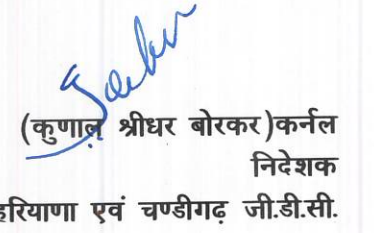 (कुणाल श्रीधर बोरकर)कर्नल
निदेशक
हरियाणा एवं चण्डीगढ़ जी.डी.सी.